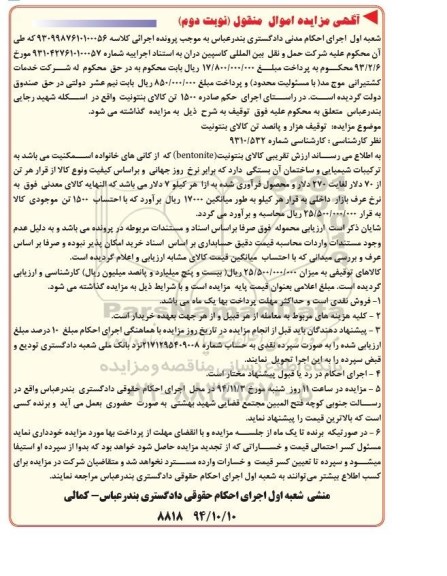 آگهی مزایده اموال منقول (نوبت دوم)
شعبه اول اجرای احکام مدنی دادگستری بندرعباس به موجب پرونده اجرائی کلاسه ۹۳۰۹۹۸۷۶۱۰۱۰۰۰۵۶ که طی
آن محکوم علیه شرکت حمل و نقل بین المللی کاسپین دران به استناد اجراییه شماره ۹۳۱۰۴۲۷۶۱۰۱۰۰۰۵۷ مورخ
۹۳/۲/۶ محکوم به پرداخت مبلغ ۱۷/۸۰۰/۰۰۰/۰۰۰ ریال بابت محکوم به در حق محکوم له شرکت خدمات
کشتیرانی موج مد( با مسئولیت محدود) و پرداخت مبلغ ۸۵۰/۰۰۰/۰۰۰ ریال بابت نیم عشر دولتی در حق صندوق
دولت گردیده است. در راستای اجرای حکم صادره ۱۵۰۰ تن کالای بنتونیت واقع در اسکله شهید رجایی
بندرعباس متعلق به محکوم علیه فوق توقیف به شرح ذیل به مزایده گذاشته می شود.
موضوع مزایده: توقیف هزار و پانصد تن کالای بنتونیت
نظر کارشناسی : کارشناسی شماره ۹۳۱۰/۵۳۲
به اطلاع می رساند ارزش تقریبی کالای بنتونیت(bentonite) که از کانی های خانواده اسمکتیت می باشد به
ترکیبات شیمیایی و ساختمان آن بستگی دارد که برابر نرخ روز جهانی و براساس کیفیت ونوع کالا از قرار هر تن
از ۷۰ دلار لغایت ۲۷۰ دلار و محصول فرآوری شده به ازا هر کیلو ۷ دلار می باشد که النهایه کالای معدنی فوق به
نرخ عرف بازار داخلی به قرار هر کیلو به طور میانگین ۱۷۰۰۰ ریال برآورد که با احتساب ۱۵۰۰ تن موجودی کالا
به قرار ۲۵/۵۰۰/۰۰۰/۰۰۰ ریال محاسبه و برآورد می گردد.
شایان ذکر است ارزیابی محموله فوق صرفا براساس اسناد و مستندات مربوطه در پرونده می باشد و به دلیل عدم
وجود مستندات واردات محاسبه قیمت دقیق حسابداری بر اساس اسناد خرید امکان پذیر نبوده و صرفا بر اساس
عرف و بررسی میدانی که با احتساب میانگین قیمت کالای مشابه ارزیابی و اعلام گردیده است.
کالاهای توقیفی به میزان ۲۵/۵۰۰/۰۰۰/۰۰۰ ریال( بیست و پنج میلیارد و پانصد میلیون ریال) کارشناسی و ارزیابی
گردیده است. مبلغ اعلامی بعنوان قیمت پایه مزایده است و با شرایط ذیل به مزایده گذاشته می شود.
۱- فروش نقدی است و حداکثر مهلت پرداخت بها یک ماه می باشد.
۲- کلیه هزینه های مربوط به معامله از هر قبیل و از هر جهت بعهده خریدار است.
۳- پیشنهاد دهندگان باید قبل از انجام مزایده در تاریخ روز مزایده با هماهنگی اجرای احکام مبلغ ۱۰ درصد مبلغ
ارزیابی شده را به صورت سپرده نقدی به حساب شماره ۲۱۷۱۲۹۵۴۰۹۰۰۸ نزد بانک ملی شعبه دادگستری تودیع و
قبض سپرده را به این اجرا تحویل نمایند.
۴- اجرای احکام در رد یا قبول پیشنهاد مختار است.
۵- مزایده در ساعت ۱۱ روز شنبه مورخ ۹۴/۱۱/۳ در محل اجرای احکام حقوقی دادگستری بندرعباس واقع در
رسالت جنوبی کوچه فتح المبین مجتمع قضایی شهید بهشتی به صورت حضوری بعمل می آید و برنده کسی
است که بالاترین قیمت را پیشنهاد نماید.
۶- در صورتیکه برنده تا یک ماه از جلسه مزایده و با انقضای مهلت از پرداخت بها مورد مزایده خودداری نماید
مسئول کسر احتمالی قیمت و خساراتی که از تجدید مزایده حاصل شود خواهد بود که بدوا از سپرده او استیفا
میشود و سپرده تا تعیین کسر قیمت و خسارات وارده مسترد نخواهد شد و متقاضیان شرکت در مزایده برای
کسب اطلاع بیشتر می‌توانند به شعبه اول اجرای احکام حقوقی دادگستری بندرعباس مراجعه نمایند.
منشی شعبه اول اجرای احکام حقوقی دادگستری بندرعباس – کمالی
۹۴/۱۰/۱۰ ۸۸۱۸